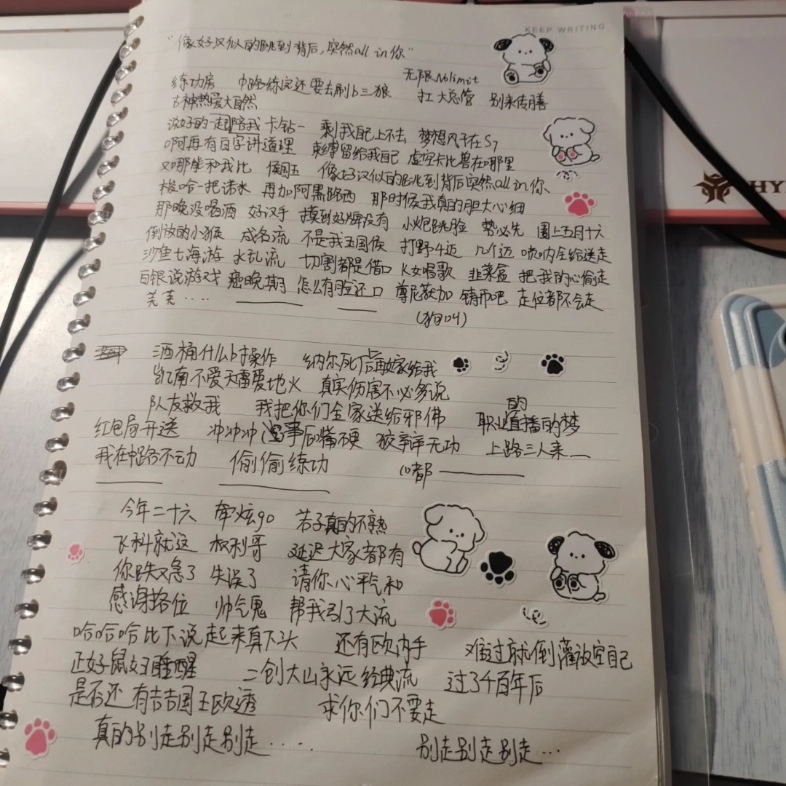 KEEP WRITING
"像好汉似的跳到背后,突然all in你"
无限Nolimit
练功房 中路练完还要去刷b三狼 扛大总管 别来传膳
古神热爱大自然
说好的一起陪我卡钻一 剩我自己上不去 梦想内子在S7
啊再有日字讲道理 束缚留给我自己 虚空卡比兽在哪里
又哪坐和我比 侯国玉 像好汉似的跳到背后突然all in你
板哈一把诸水 再加阿黑路西 那时侯我真的胆大心细
那晚没喝酒 好汉手 摸到好牌没有 小炮跳脸 势必先 围上五月十六
倒放的小猴 成名流 不是我王国侯 打野4迈 几个迈 喷内全给送走
沙鱼七海游 水乱流 切割都是借口 K女唱歌 韭菜盒 把我的心偷走
白银说游戏 癌晚期 怎么有脸还口 尊尼获加 铸币吧 走位都不会走
芜芜....
(狗叫)
酒桶什么b操作 纳尔死后再嫁给我
凯南不爱天雷爱地火 真实伤害不必多说
队友救我 我把你们全家送给邪佛 职业直播的梦
的
红包局开送 冲冲冲 遇事后嘴不硬 狡辩无功 上路三人来__
我在中路不动 偷偷练功 心都
今年二十六 牵炫90 若子真的不熟
飞科就这 权利哥 延迟大家都有
你跌又急了 失误了 请你心平气和
感谢各位 帅气鬼 帮我引了大流
哈哈哈比下说起来真下头 还有欧内手 难过就倒灌放空自己
正好鼠妇睡醒 二创大山永远经典流 过了千百年后
是否还有吉吉国王欧透 求你们不要走
真的别走别走别走..... 别走别走别走...